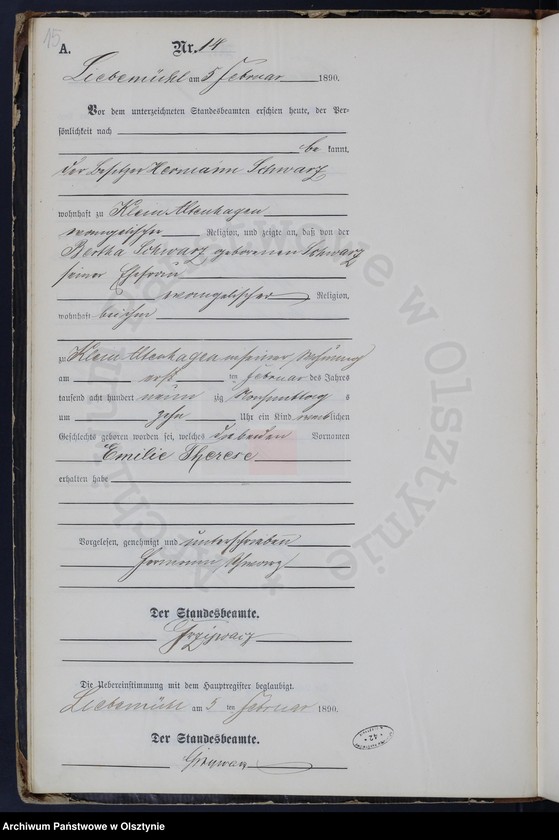 15
A.
Nr. 14
Liebemühl am 5 Februar 1890.
Vor dem unterzeichneten Standesbeamten erschien heute, der Per-
sönlichkeit nach
be kannt,
der Besitzer Hermann Schwarz
wohnhaft zu Klein Altenhagen
evangelischer Religion, und zeigte an, daß von der
Bertha Schwarz geborenen Schwarz
seiner Ehefrau
evangelischer Religion,
wohnhaft bei ihm
zu Klein Altenhagen in seiner Wohnung
am erst ten Februar des Jahres
tausend acht hundert neun zig Vormittags
um zehn Uhr ein Kind weiblichen
Geschlechts geboren worden sei, welches die beiden Vornamen
Emilie Therese
erhalten habe
Vorgelesen, genehmigt und unterschrieben
Hermann Schwarz
Der Standesbeamte.
Die Uebereinstimmung mit dem Hauptregister beglaubigt.
Liebemühl am 5 ten Februar 1890.
Der Standesbeamte.
* 42 *
Archiwum Państwowe w Olsztynie
Archiwum Państwowe w Olsztynie